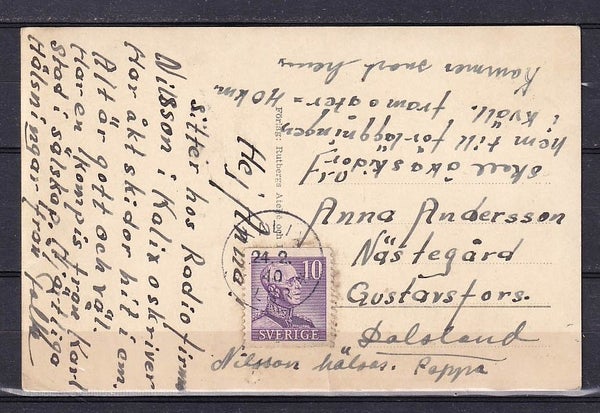 Hej Anna!
Sitter hos Radiofirma
Nilsson i Kalix o skriver
Har åkt skidor hit i em.
Allt är gott och väl.
Har en kompis från Karl
Stad i sälskap. Hjärtliga
Hälsningar från
Skall åka skidor
hem till förläggningen
i kväll. fram o åter = 40 km.
Kommer snart hem
Frk
Anna Andersson
Nästegård
Gustavsfors.
Dalsland
Nilsson hälsar. Pappa
Förlag: Rutbergs
24.2.
40
10
SVERIGE